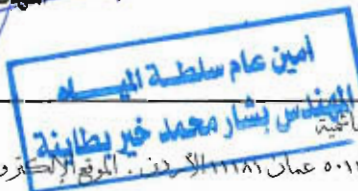 أمين عام سلطة المياه
المهندس بشار محمد خير بطاينة
عمان ١١١٨١ الأردن . الموقع الإلكترو